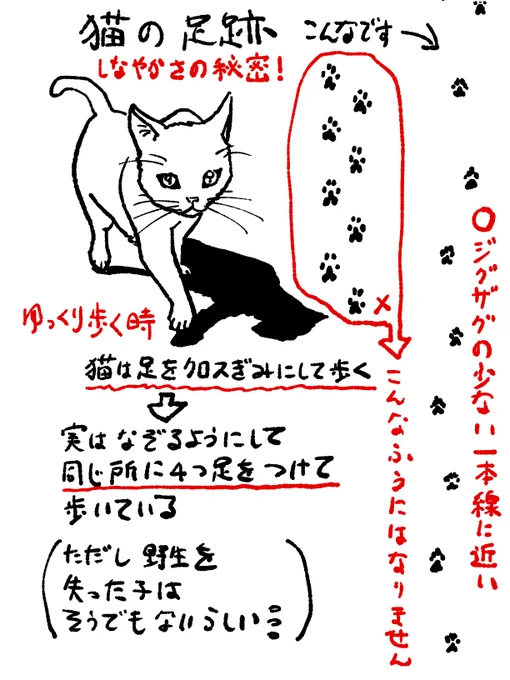 猫の足跡
こんなです→
しなやかさの秘密!
ゆっくり歩く時
×
○ジグザグの少ない一本線に近い
こんなふうにはなりません
猫は足をクロスぎみにして歩く
実はなぞるようにして
同じ所に4つ足をつけて
歩いている
(ただし野生を
失った子は
そうでもないらしい)